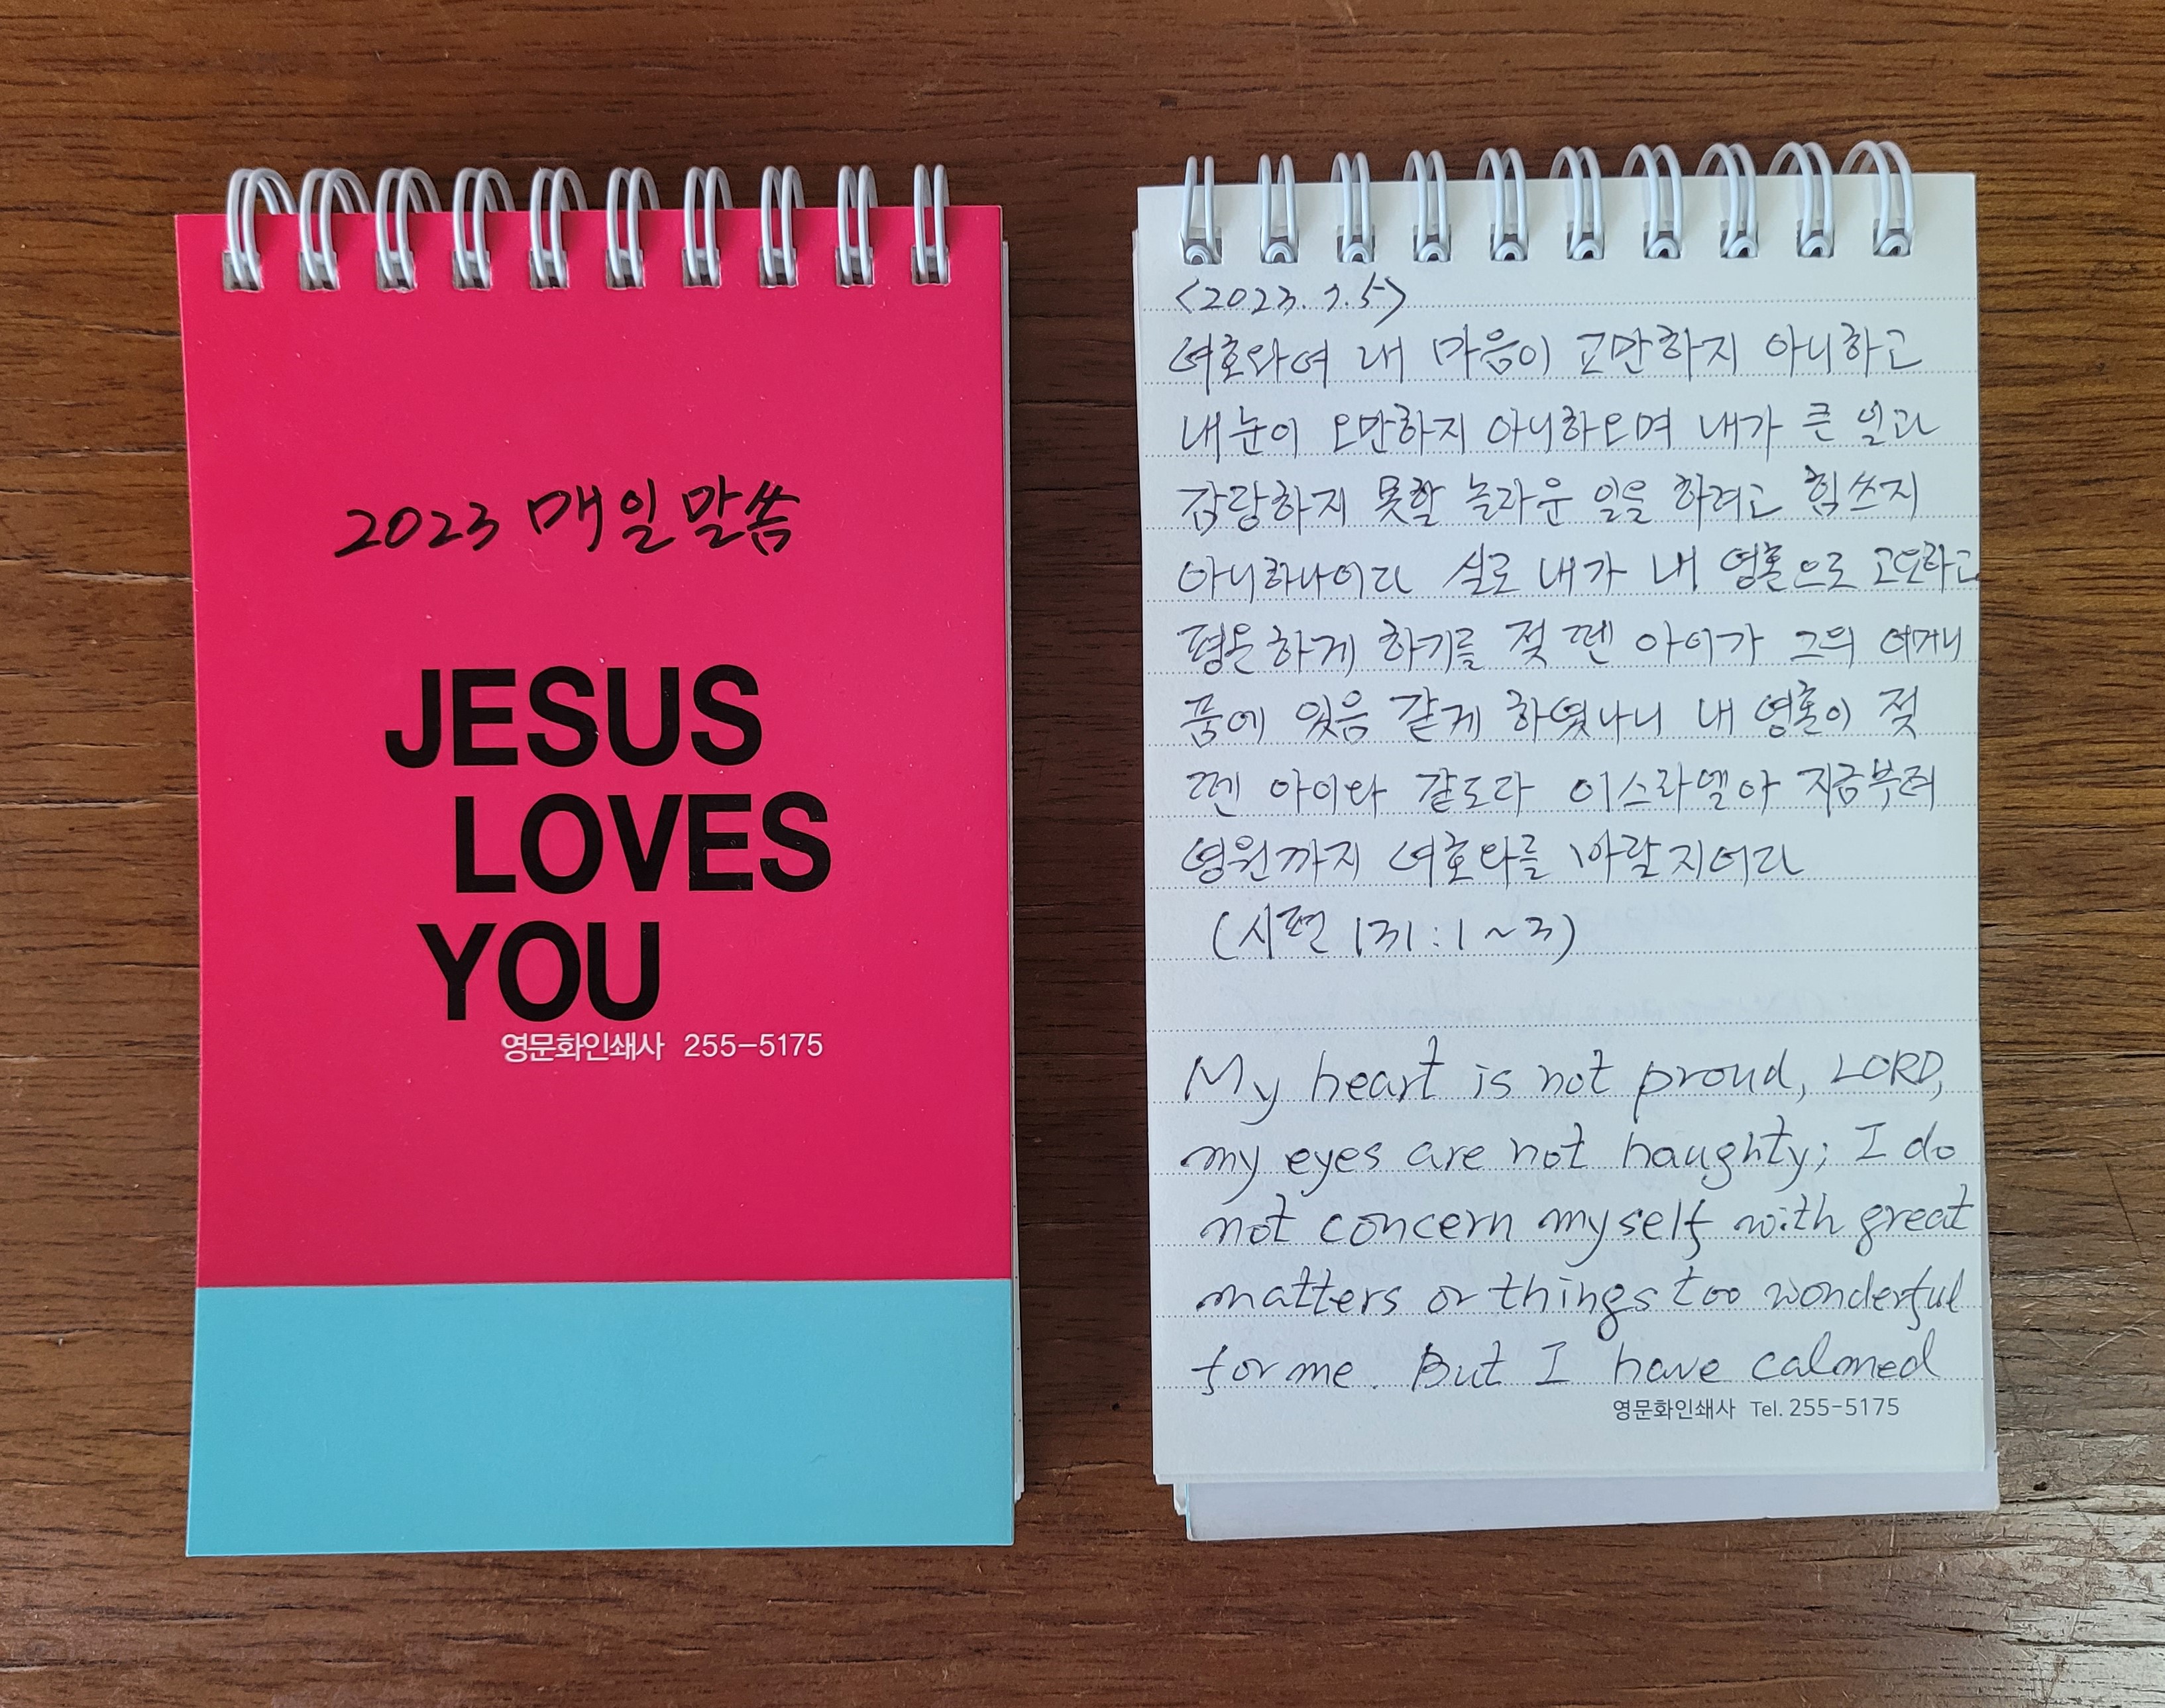 2023 매일 말씀
JESUS
LOVES
YOU
영문화인쇄사 255-5175
<2023. 7. 5>
여호와여 내 마음이 교만하지 아니하고
내 눈이 오만하지 아니하오며 내가 큰 일과
감당하지 못할 놀라운 일을 하려고 힘쓰지
아니하나이다 실로 내가 내 영혼으로 고요하고
평온하게 하기를 젖 뗀 아이가 그의 어머니
품에 있음 같게 하였나니 내 영혼이 젖
뗀 아이와 같도다 이스라엘아 지금부터
영원까지 여호와를 바랄지어다
(시편 131:1~3)
My heart is not proud, LORD,
my eyes are not haughty; I do
not concern myself with great
matters or things too wonderful
for me. But I have calmed
영문화인쇄사 Tel. 255-5175